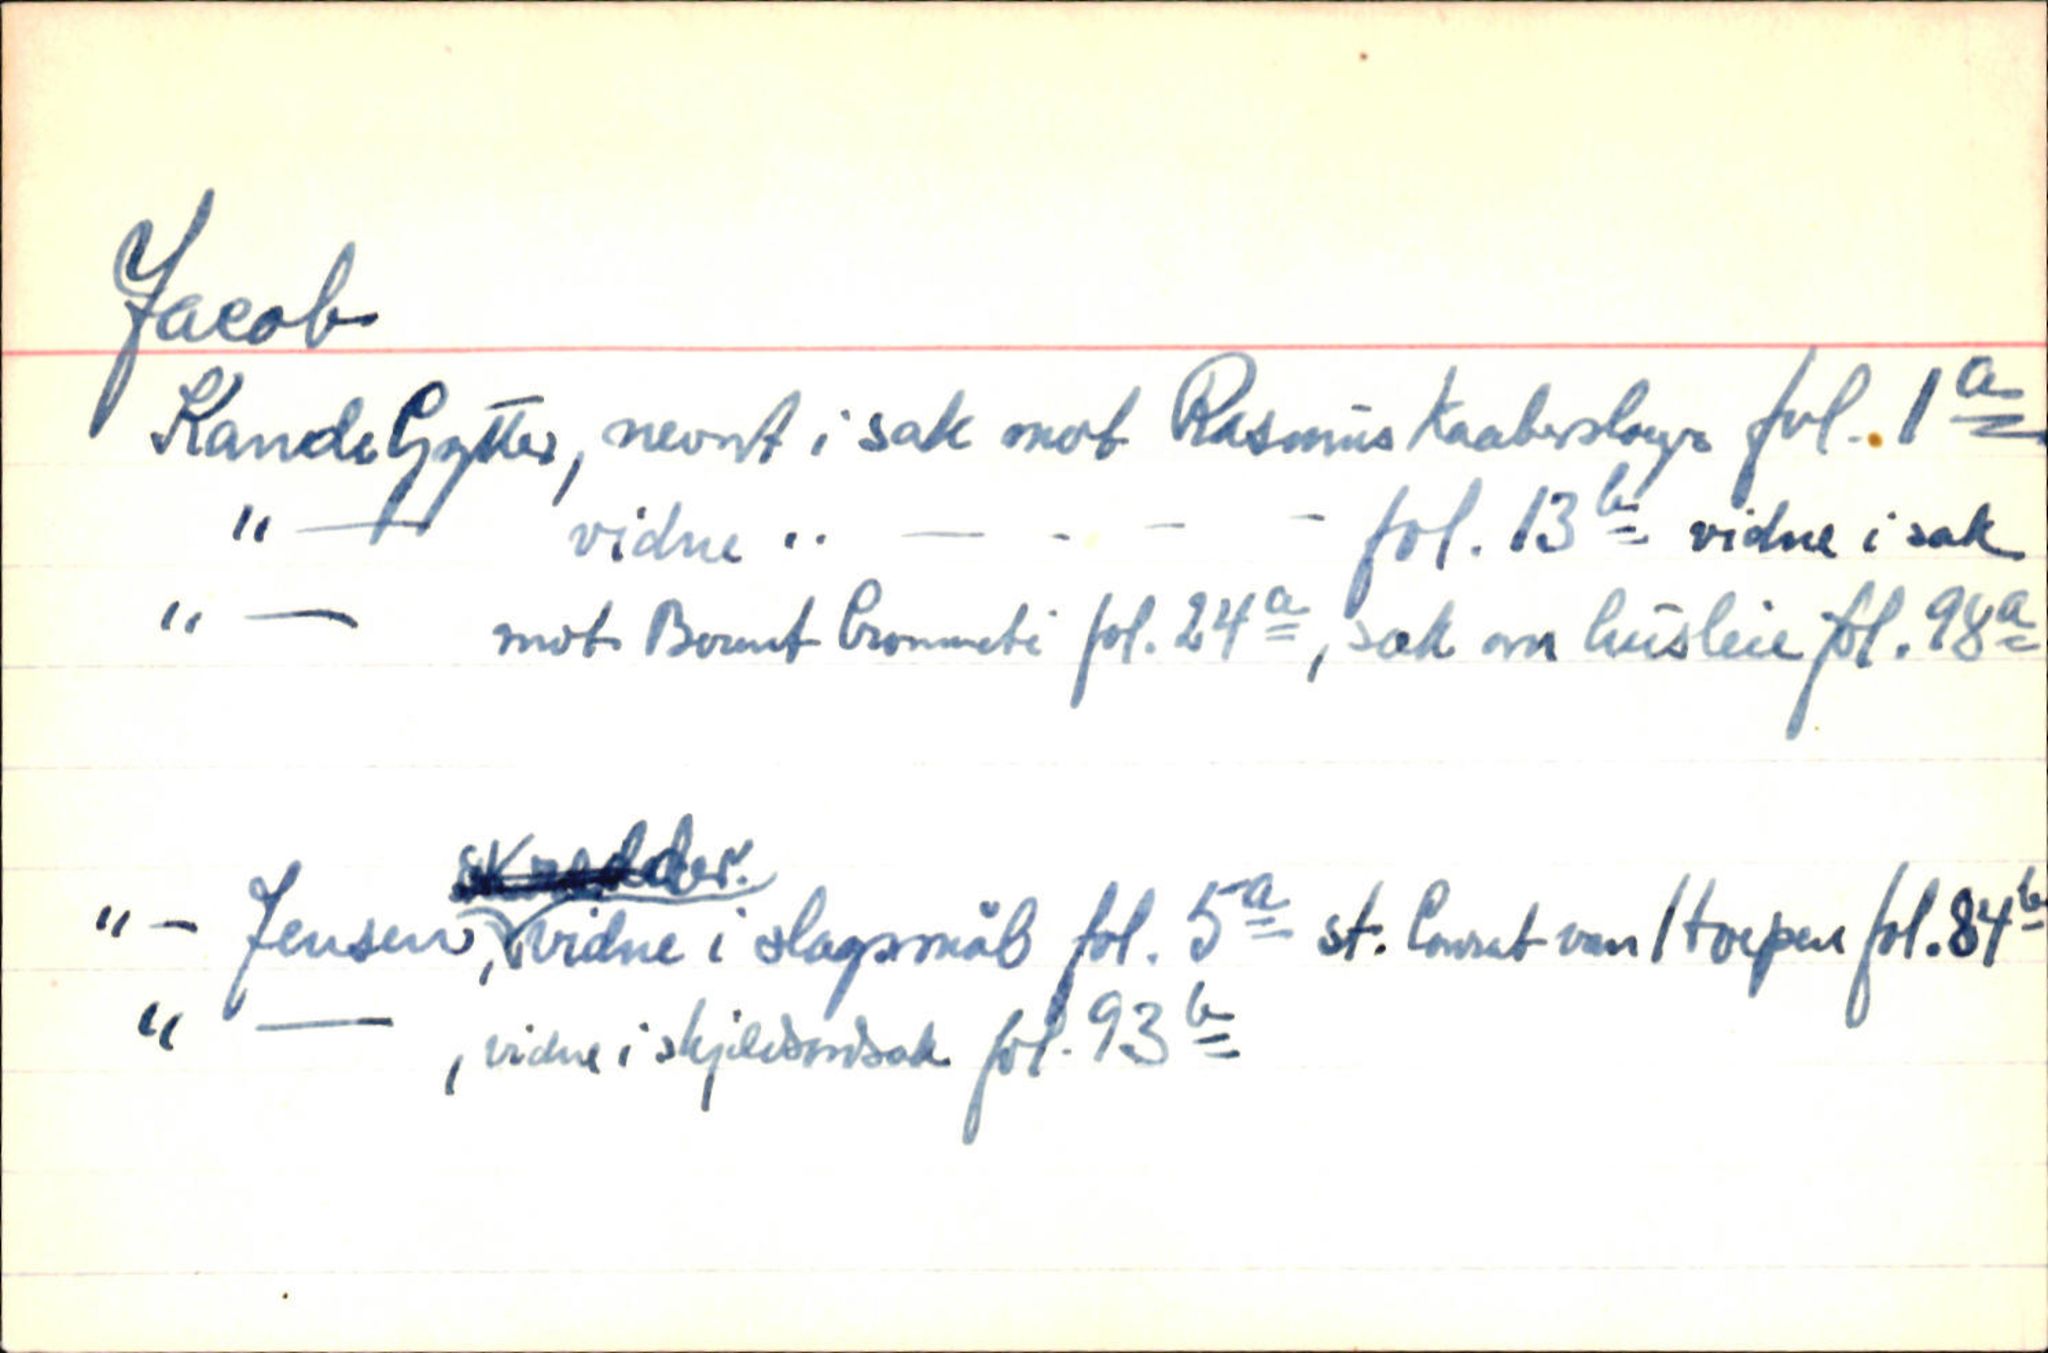 Jacob
KandeGytter, nevnt i sak mot Rasmus Kaaberslager fol. 1a
" — vidne " — - - - fol. 13b vidne i sak
" — mot Bernt Crommeti fol. 24a, sak om husleie fol. 98a
skredder.
" - Jensen, vidne i slagsmål fol. 5a st. Conrat van Itorpen fol. 84b
" — , vidne i skjeldsordsak fol. 93b